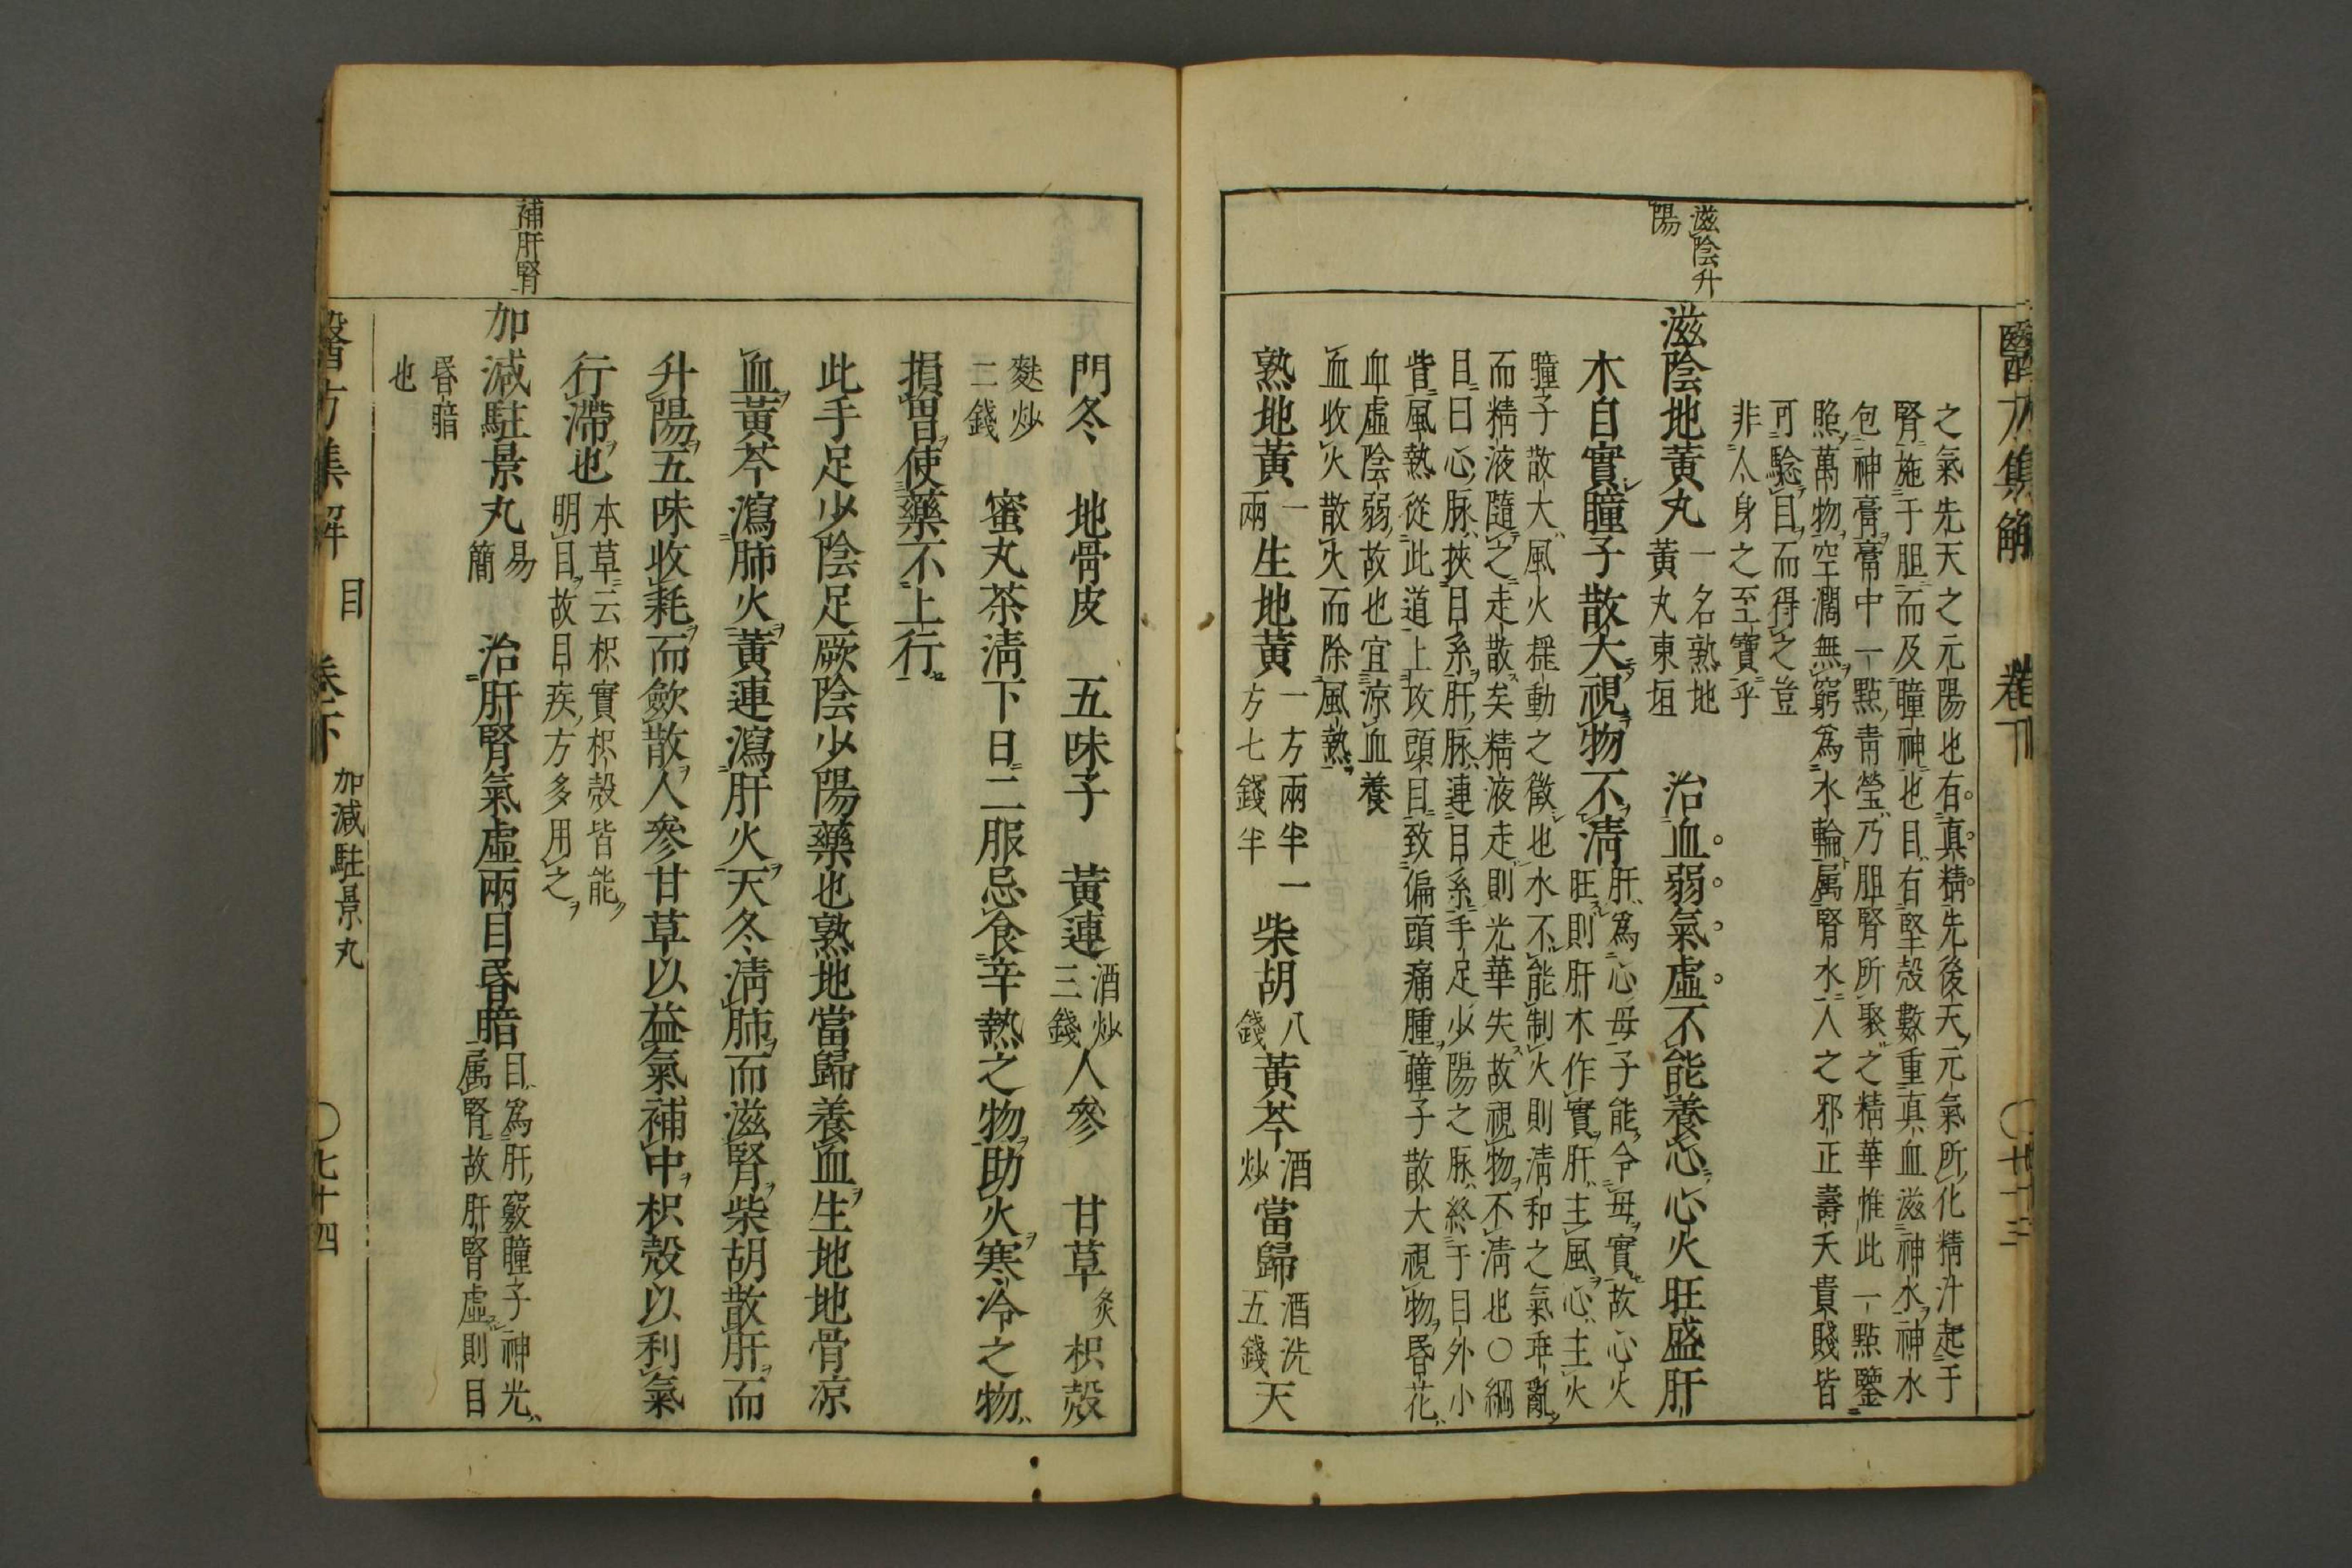 醫方集解
卷下
之氣先天之元陽也有真精先後天元氣所化精汁起于
腎施于胆而及瞳神也目有堅殼數重真血滋神水神水
包神膏膏中一點青瑩乃胆腎所聚之精華惟此一點鑒
照萬物空濶無窮為水輪属腎水人之邪正壽夭貴賤皆
可驗目而得之豈
非人身之至寶乎
滋陰升
陽
滋陰地黃丸
一名熟地
黃丸東垣
治血弱氣虛不能養心心火旺盛肝
木自實瞳子散大視物不清
肝為心母子能令母實故心火
旺則肝木作實肝主風心主火
瞳子散大風火搖動之徵也水不能制火則清和之氣乖亂
而精液隨之走散矣精液走則光華失故視物不清也○綱
目曰心脉挾目系肝脉連目系手足少陽之脉終于目外小
眥風熱從此道上攻頭目致偏頭痛腫瞳子散大視物昏花
血虛陰弱故也宜涼血養
血收火散火而除風熱
熟地黃
一
兩
生地黃
一方兩半一
方七錢半
柴胡
八
錢
黃芩
酒
炒
當歸
酒洗
五錢
天
門冬　地骨皮　五味子　黃連
酒炒
三錢
人參　甘草
炙
枳殼
麩炒
二錢
蜜丸茶清下日二服忌食辛熱之物助火寒冷之物
損胃使藥不上行
此手足少陰足厥陰少陽藥也熟地當歸養血生地地骨涼
血黃芩瀉肺火黃連瀉肝火天冬清肺而滋腎柴胡散肝而
升陽五味收耗而斂散人參甘草以益氣補中枳殼以利氣
行滯也
本草云枳實枳殼皆能
明目故目疾方多用之
補肝腎
加減駐景丸
易
簡
治肝腎氣虛兩目昏暗
目為肝竅瞳子神光
属腎故肝腎虛則目
昏暗
也
醫方集解　目　卷下　加減駐景丸　〇七十四